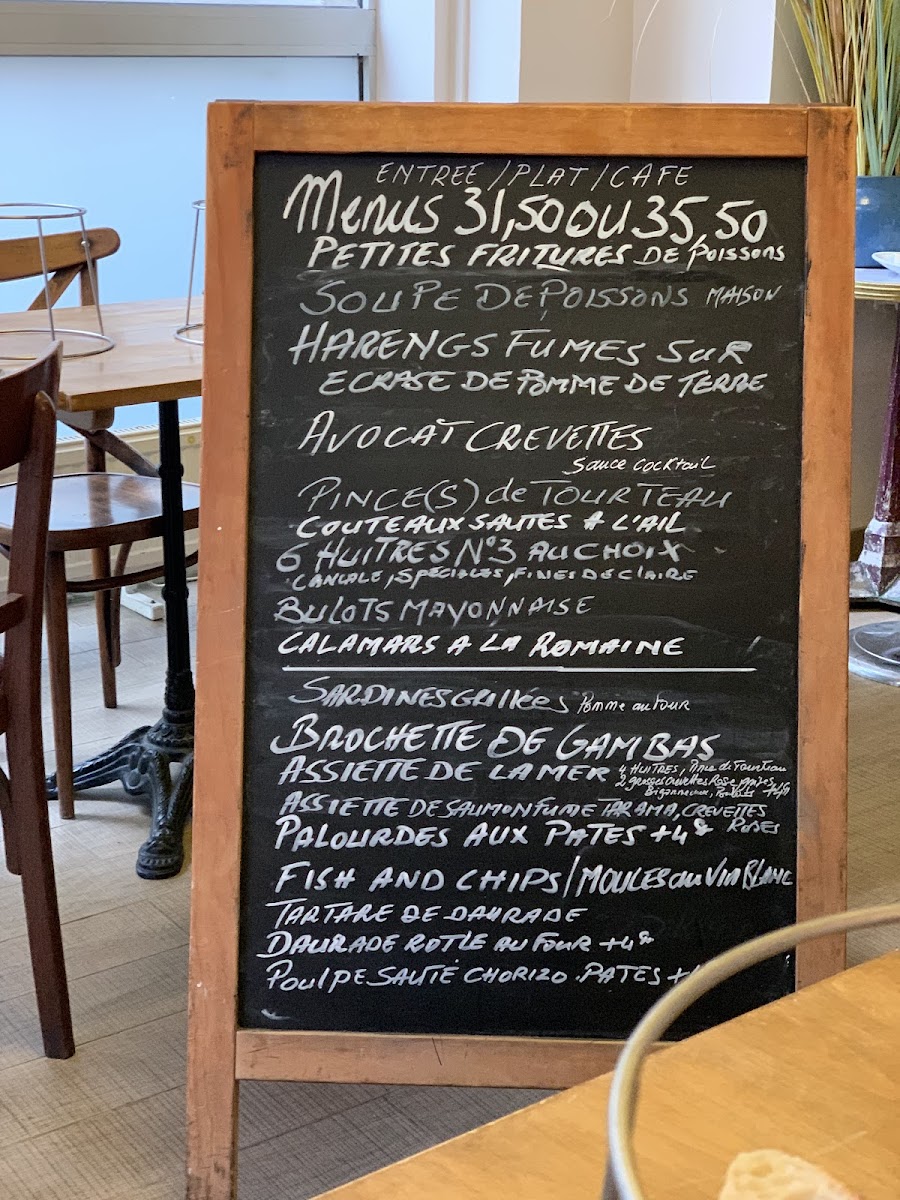 ENTREE / PLAT / CAFE
Menus 31,50 OU 35,50
PETITES FRITURES DE Poissons
SOUPE DE POISSONS MAISON
HARENGS FUMES SUR
ECRASE DE POMME DE TERRE
AVOCAT CREVETTES
Sauce cocktail
PINCE(S) de TOURTEAU
COUTEAUX SAUTES A L'AIL
6 HUITRES N°3 AU CHOIX
CANCALE, SPECIALES, FINES DE CLAIRE
BULOTS MAYONNAISE
CALAMARS A LA ROMAINE
SARDINES GRILLéES Pomme au FOUR
BROCHETTE DE GAMBAS
ASSIETTE DE LA MER 4 HUITRES, Pince de Tourteau
2 grosses crevettes Rose, grises
Bigorneaux,
ASSIETTE DE SAUMON FUME TARAMA, CREVETTES
ROSES
PALOURDES AUX PATES +4€
FISH AND CHIPS / MOULES au VIN BLANC
TARTARE DE DAURADE
DAURADE ROTIE AU FOUR +4€
POULPE SAUTÉ CHORIZO. PATES